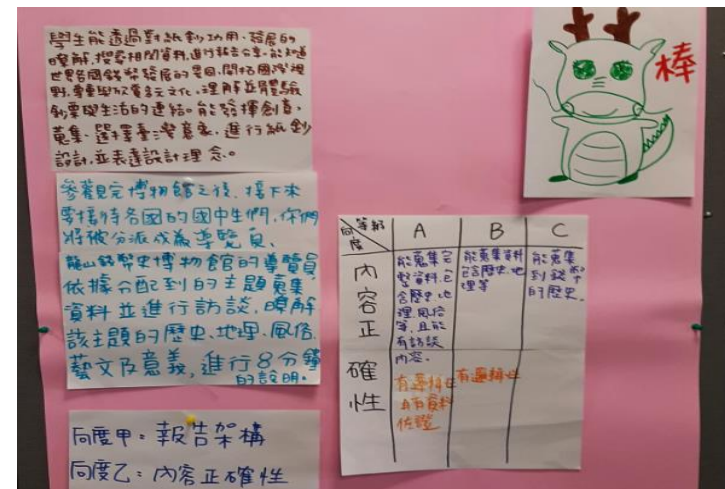 學生能透過對紙鈔功用、發展的
瞭解,搜尋相關資料,進行報告分享。能知道
世界各國錢幣發展的異同,開拓國際視
野,尊重與欣賞多元文化,理解並體驗
鈔票與生活的連結。能發揮創意,
蒐集、選擇臺灣意象,進行紙鈔
設計,並表達設計理念。
參觀完博物館之後,接下來
要接待各國的國中生們,你們
將被分派成為導覽員。
龍山錢幣史博物館的導覽員
依據分配到的主題蒐集
資料並進行訪談,瞭解
該主題的歷史、地理、風俗、
藝文及意義,進行8分鐘
的說明。
向度甲:報告架構
向度乙:內容正確性
棒
等級
向度
A
B
C
內容正確性
能蒐集完
整資料,包
含歷史、地
理、風俗
等,且能
有訪談
內容。
有邏輯性
具有資料
佐證
能蒐集資料
包含歷史、地
理等
有邏輯性
能蒐集
到錢幣
的歷史。